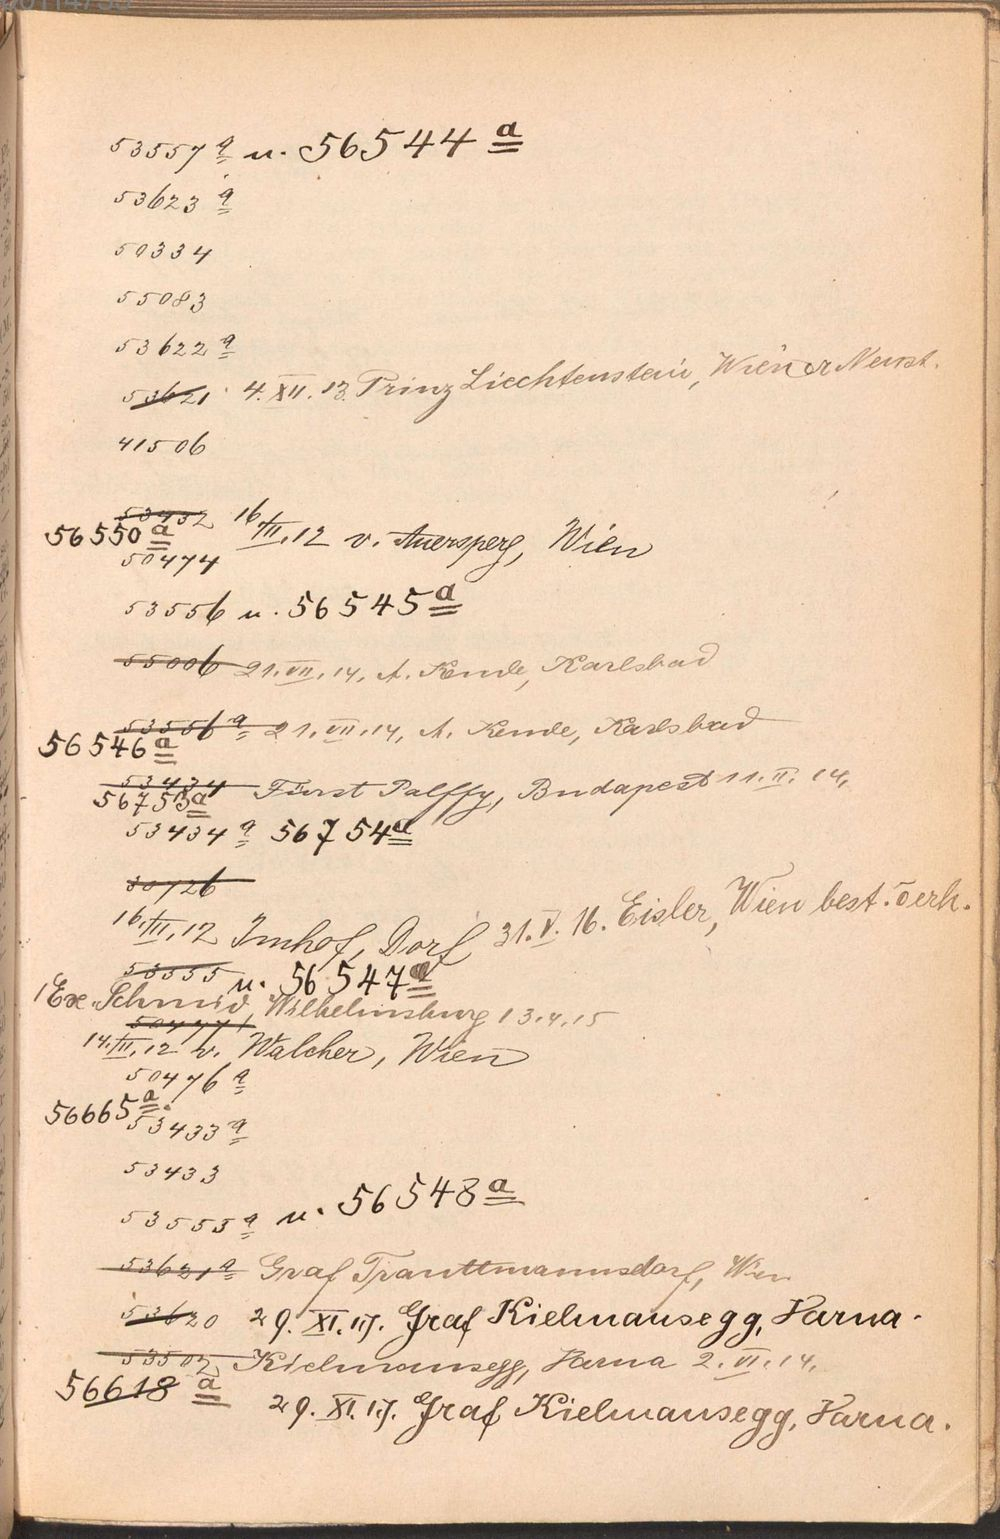 53557 a u. 56544 a
53623 a
50334
55083
53622 a
53621 4. XII. 13. Prinz Liechtenstein, Wiener Neust.
41506
50452
56550 a 16/III. 12 v. Auersperg, Wien
50474
53556 u. 56545 a
55006 21. VII. 14, A. Kende, Karlsbad
53556 a 21. VII. 14, A. Kende, Karlsbad
56546 a
53434 Fürst Palffy, Budapest 11. II. 14,
56753 a
53434 a 56754 a
30726
16/III. 12 Imhof, Dorf 31. V. 16. Eisler, Wien best. österh.
53555 u. 56547 a
1 Ex. Schmid, Wilhelmsburg 13.4.15
50477
14. III. 12 v. Walcher, Wien
50476 a
56665 a.
53433 a
53433
53555 a u. 56548 a
53621 a Graf Trauttmannsdorf, Wien
53620 29. XI. 17. Graf Kielmansegg, Varna.
53502 Kielmansegg, Varna 2. VI. 14,
56618 a 29. XI. 17. Graf Kielmansegg, Varna.